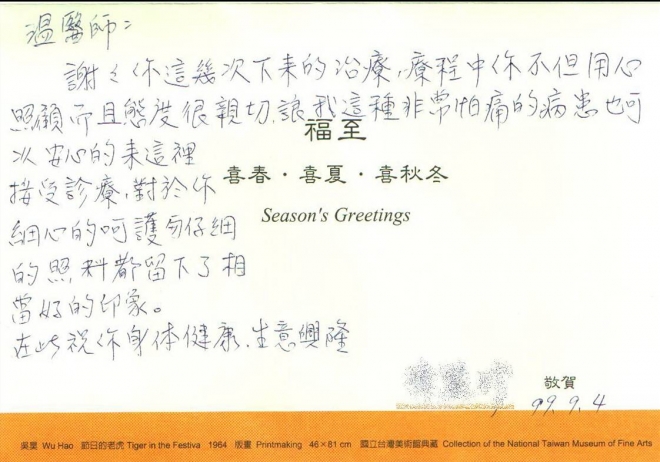 溫醫師：
謝々你這幾次下来的治療，療程中你不但用心
照顧而且態度很親切，讓我這種非常怕痛的病患也可
以安心的来這裡
接受診療，對於你
細心的呵護與仔細
的照料都留下了相
當好的印象。
在此祝你身体健康，生意興隆
福至
喜春・喜夏・喜秋冬
Season's Greetings
敬賀
99.9.4
吳昊 Wu Hao 節日的老虎 Tiger in the Festiva 1964 版畫 Printmaking 46×81 cm 國立台灣美術館典藏 Collection of the National Taiwan Museum of Fine Arts